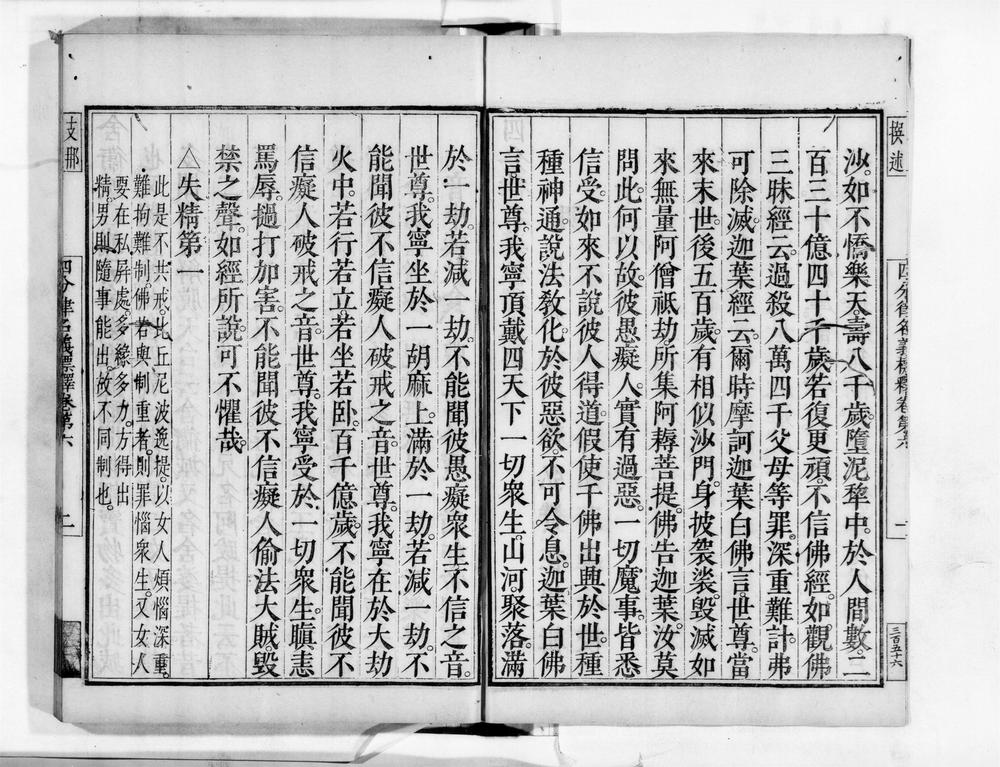 撰述
四分律名義標釋卷第六
三百五十六
沙。如不憍樂天。壽八千歲。墮泥犂中。於人間數。二
百三十億四十千歲。若復更頑。不信佛經。如觀佛
三昧經云。過殺八萬四千父母等罪。深重難計。弗
可除滅。迦葉經云。爾時摩訶迦葉白佛言。世尊。當
來末世。後五百歲。有相似沙門。身披袈裟。毀滅如
來無量阿僧祇劫。所集阿耨菩提。佛告迦葉。汝莫
問此。何以故。彼愚癡人。實有過惡。一切魔事。皆悉
信受。如來不說彼人得道。假使千佛出興於世。種
種神通。說法教化。於彼惡欲。不可令息。迦葉白佛
言。世尊。我寧頂戴四天下一切衆生。山河聚落。滿
於一劫。若減一劫。不能聞彼愚癡衆生不信之音。
世尊。我寧坐於一胡麻上。滿於一劫。若減一劫。不
能聞彼不信癡人破戒之音。世尊。我寧在於大劫
火中。若行若立。若坐若卧。百千億歲。不能聞彼不
信癡人破戒之音。世尊。我寧受於一切衆生瞋恚
罵辱。撾打加害。不能聞彼不信癡人。偷法大賊。毀
禁之聲。如經所說。可不懼哉。
△失精第一
此是不共戒。比丘尼波逸提。以女人煩惱深重。
難拘難制。佛若與制重者。則罪惱衆生。又女人
要在私屏處。多緣多力。方得出
精。男則隨事能出。故不同制也。
支那
四分律名義標釋卷第六
二